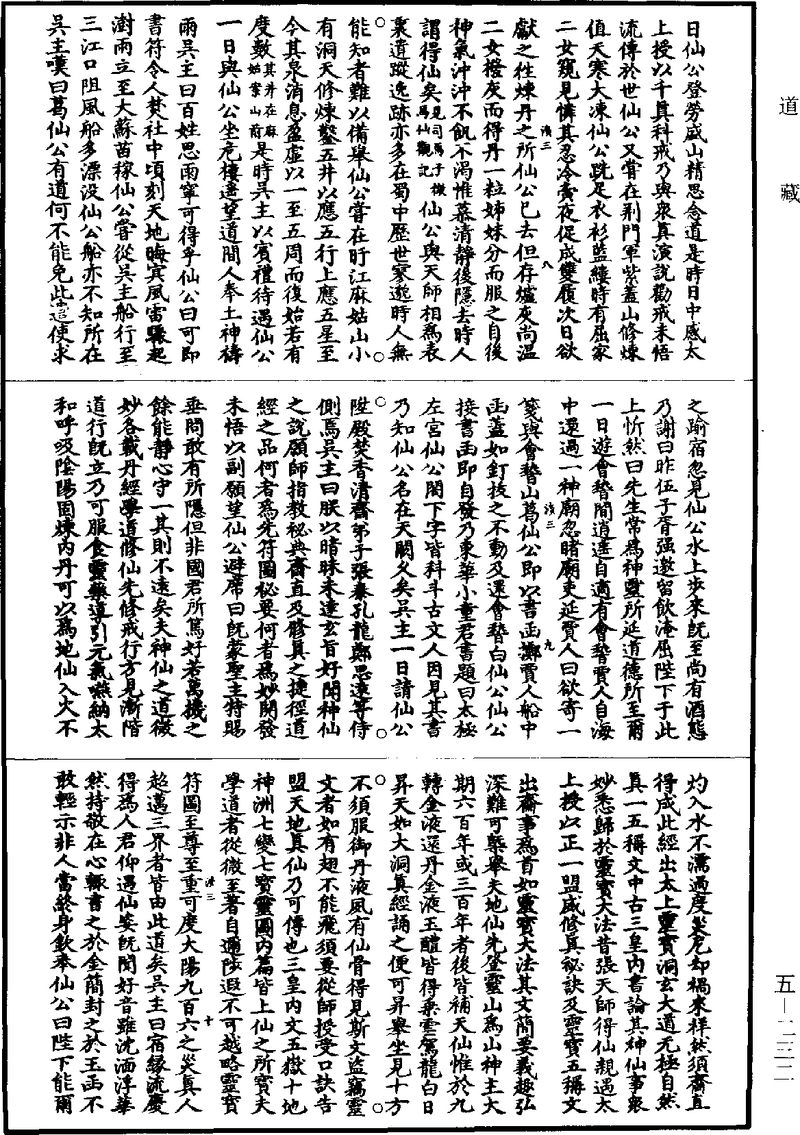 道藏
五—二三二
日仙公登勞盛山精思念道是時日中感太
上授以千真科戒乃與衆真演說勸戒未悟
流傳於世仙公又嘗在荆門軍紫蓋山修煉
值天寒大凍仙公跣足衣衫藍縷時有屈家
二女窺見憐其忍冷賣夜促成雙履次日欲
淺三
八
獻之往煉丹之所仙公已去但存爐灰尚溫
二女撥灰而得丹一粒姊妹分而服之自後
神氣沖沖不飢不渴惟慕清靜後隱去時人
謂得仙矣見司馬子微馬仙觀記仙公與天師相爲表
裏遺蹤逸跡亦多在蜀中歷世寥邈時人無
能知者難以備舉仙公嘗在盱江麻姑山小
有洞天修煉鑿五井以應五行上應五星至
今其泉消息盈虛以一至五周而復始若有
度數其井在麻姑案山前是時吳主以賓禮待遇仙公
一日與仙公坐危樓遙望道間人奉土神禱
雨吳主曰百姓思雨寧可得乎仙公曰可即
書符令人焚社中頃刻天地晦冥風雷驟起
澍雨立至大蘇苗稼仙公嘗從吳主船行至
三江口阻風船多漂没仙公船亦不知所在
吳主嘆曰葛仙公有道何不能免此遣使求
之踰宿忽見仙公水上步來旣至尚有酒態
乃謝曰昨伍子胥强邀留飲淹屈陛下于此
上忻然曰先生常爲神靈所延道德所至爾
一日遊會稽間逍遙自適有會稽賈人自海
中還過一神廟忽睹廟吏延賈人曰欲寄一
淺三
九
箋與會稽山葛仙公即以書函擲賈人船中
函蓋如釘拔之不動及還會稽白仙公仙公
接書函即自發乃東華小童君書題曰太極
左宮仙公閣下字皆科斗古文人因見其書
乃知仙公名在天闕久矣吳主一日請仙公
陞殿焚香清齋弟子張泰孔龍鄭思遠等侍
側焉吳主曰朕以暗昧未達玄旨好聞神仙
之說願師指教祕典齋直及修真之捷徑道
經之品何者爲先符圖秘要何者爲妙開發
未悟以副願望仙公避席曰旣蒙聖主特賜
垂問敢有所隱但非國君所篤好若萬機之
餘能靜心守一其則不遠矣夫神仙之道微
妙各載丹經學道修仙先修戒行方見漸階
道行旣立乃可服食靈藥導引元氣嚥納太
和呼吸陰陽固煉內丹可以爲地仙入火不
灼入水不濡過度災厄却禍來祥然須齋直
得成此經出太上靈寶洞玄大道无極自然
真一五稱文中古三皇內書論其神仙事衆
妙悉歸於靈寶大法昔張天師得仙親遇太
上授以正一盟威修真秘訣及靈寶五稱文
出齋事爲首如靈寶大法其文簡要義趣弘
深難可槩舉夫地仙先登靈山爲山神主大
期六百年或三百年者後皆補天仙惟於九
轉金液還丹金液玉醴皆得乘雲駕龍白日
昇天如大洞真經誦之便可昇舉坐見十方
不須服御丹液風有仙骨得見斯文盜竊靈
文者如有翅不能飛須要從師授受口訣告
盟天地真仙乃可傳也三皇內文五嶽十地
神洲七變七寶靈圖內篇皆上仙之所寶夫
學道者從微至著自邇陟遐不可越略靈寶
淺三
十
符圖至尊至重可度大陽九百六之災真人
超邁三界者皆由此道矣吳主曰宿緣流慶
得爲人君仰遇仙姿旣聞好音雖沈湎浮華
然持敬在心輒書之於金簡封之於玉函不
敢輕示非人當終身欽奉仙公曰陛下能爾